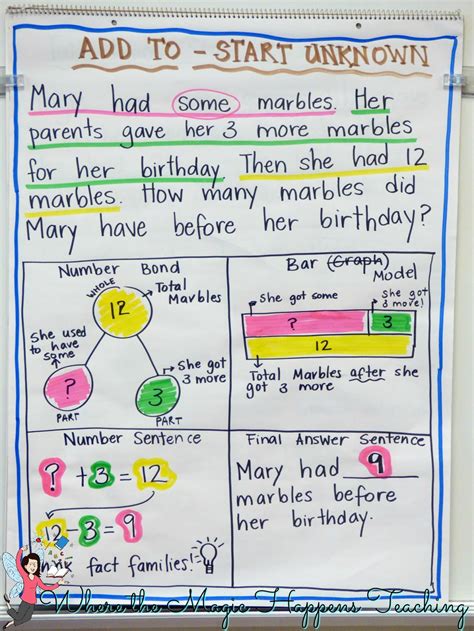 ADD TO - START UNKNOWN
Mary had some marbles. Her
parents gave her 3 more marbles
for her birthday. Then she had 12
marbles. How many marbles did
Mary have before her birthday?
Number Bond
WHOLE
12
Total
Marbles
She used
to have
some
?
PART
She got
3 more
3
PART
Bar (Graph) Model
She got some
She got
3 more!
?
3
12
Total Marbles after she
got 3 more
Number Sentence
? + 3 = 12
12 - 3 = 9
fact families!
Final Answer Sentence
Mary had 9
marbles before
her birthday.
Where the Magic Happens Teaching